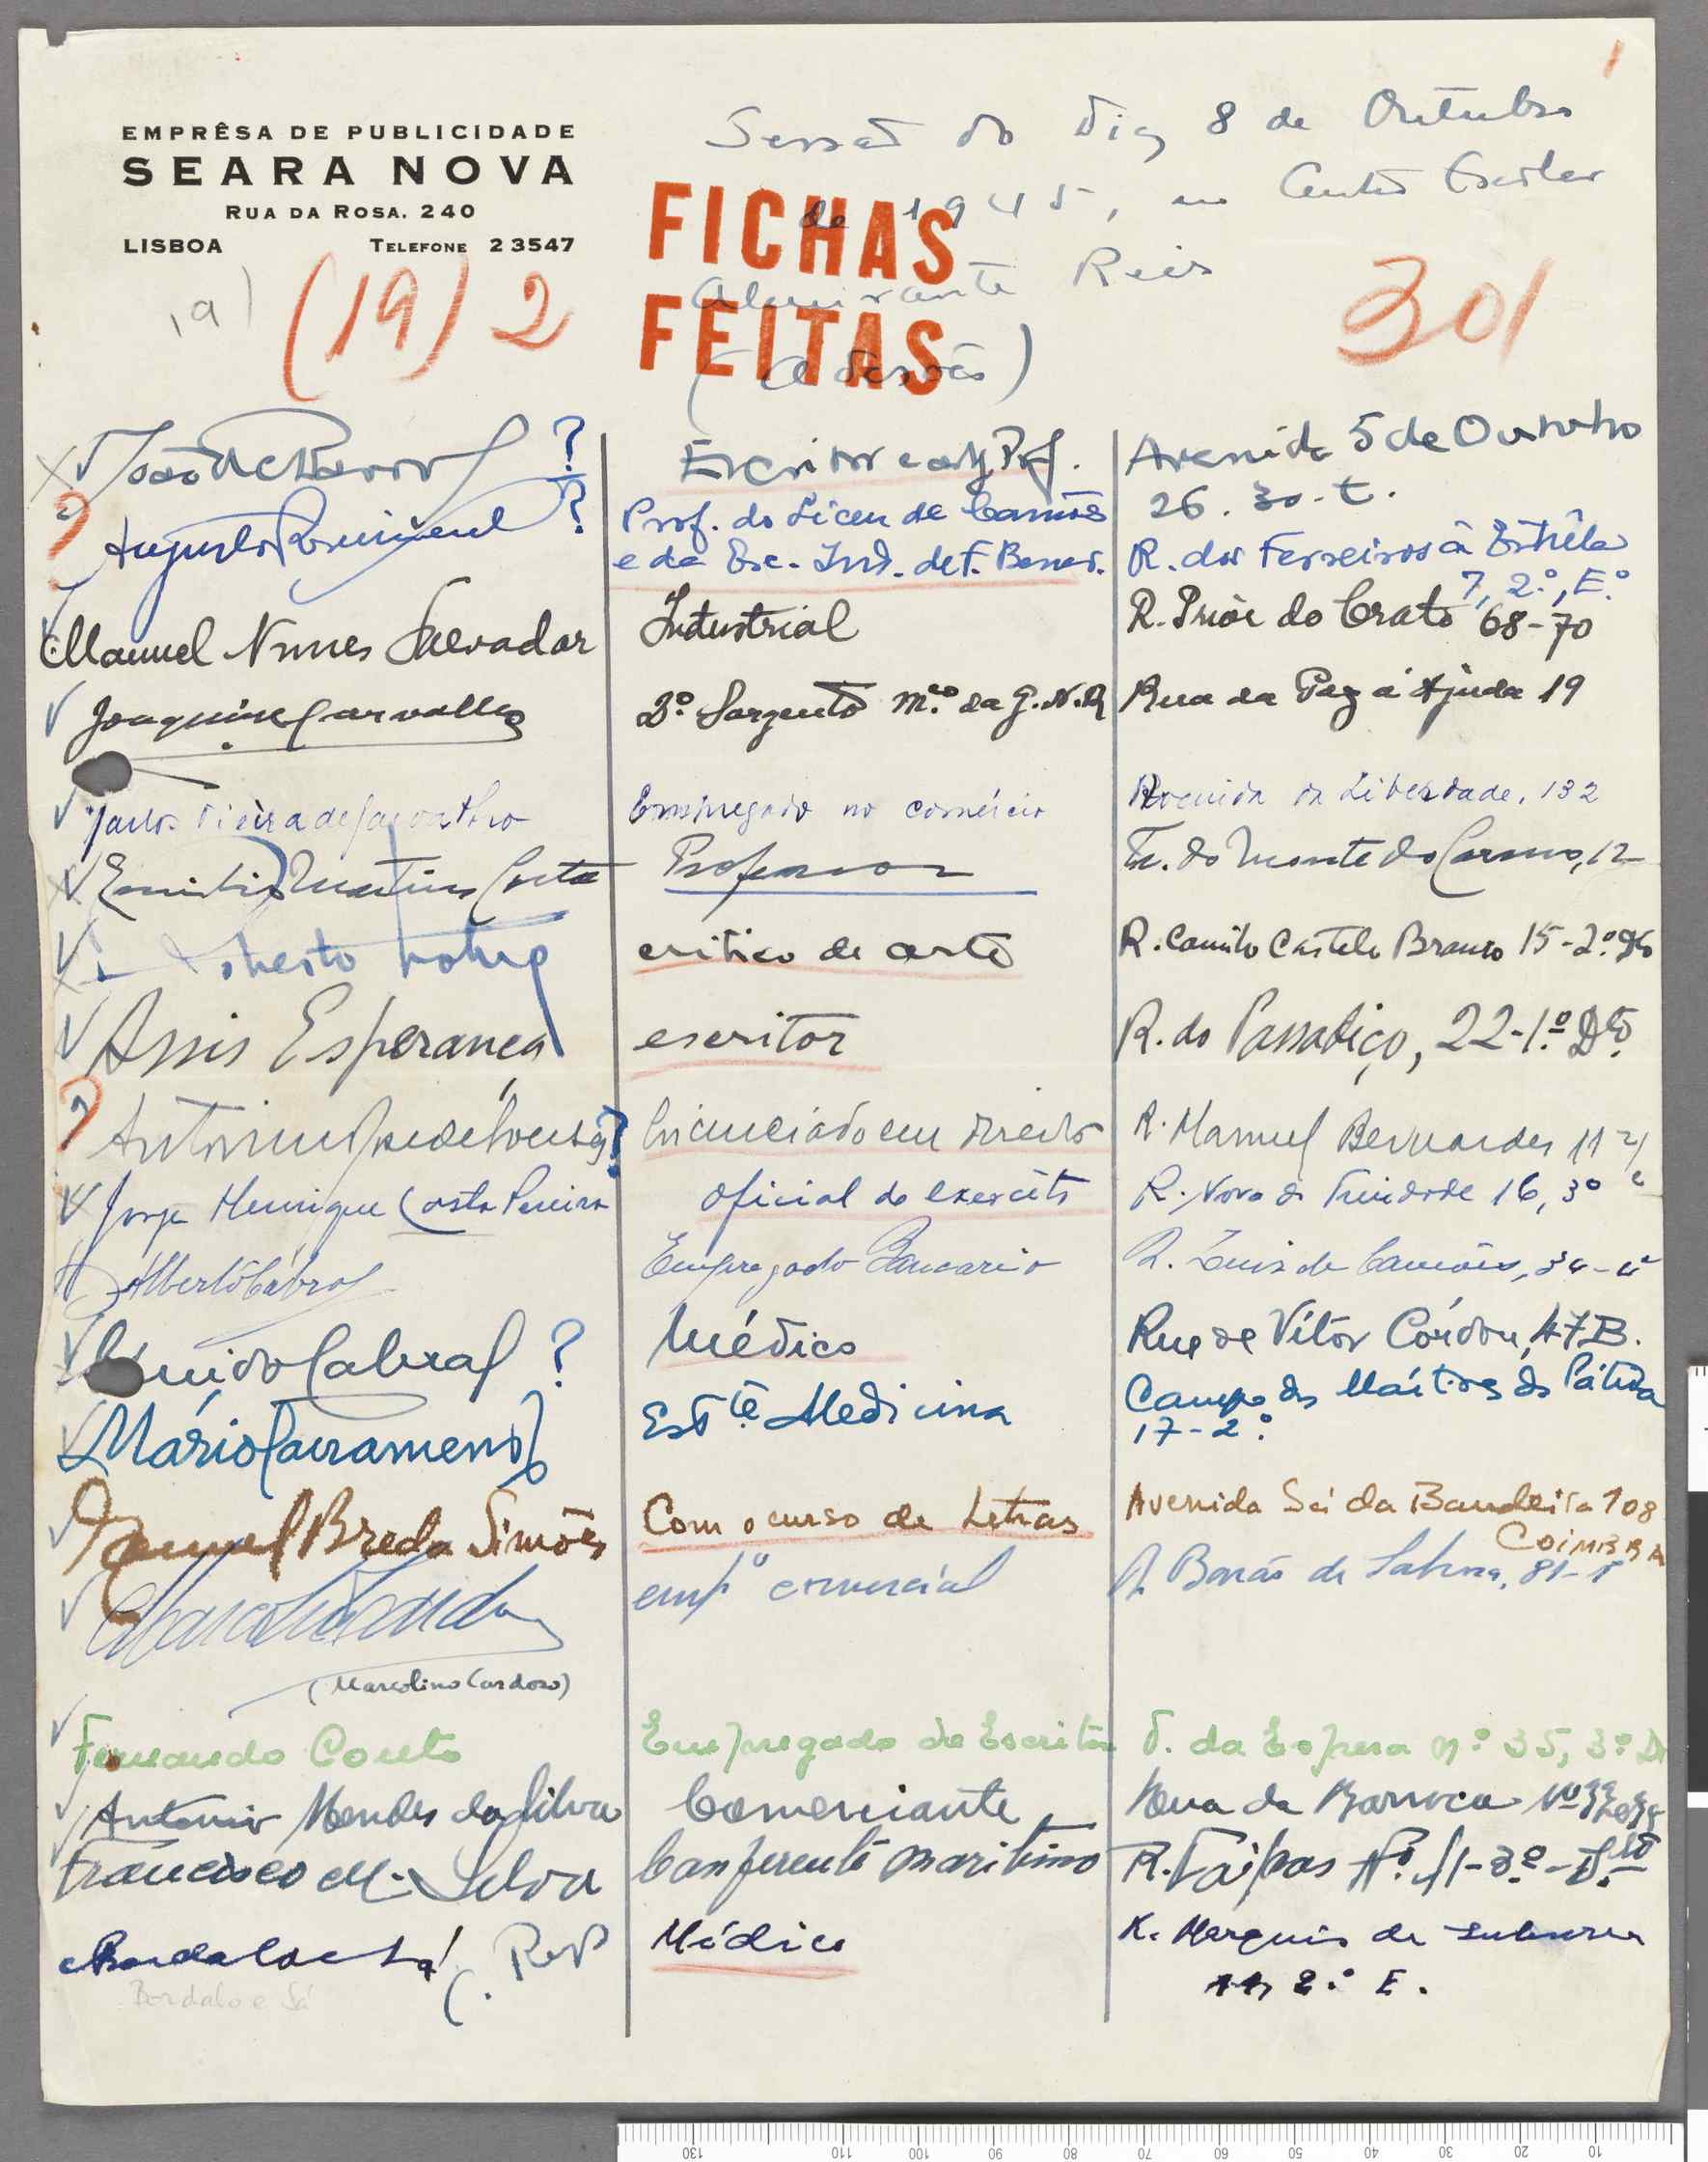 1
EMPRÊSA DE PUBLICIDADE
SEARA NOVA
RUA DA ROSA. 240
LISBOA TELEFONE 23547
Sessão do dia 8 de Outubro
de 1945, no Centro Escolar
Almirante Reis
(Adesões)
FICHAS
FEITAS
19) (19) 2
301
João de Barros ? Escritor e Prof. Avenida 5 de Outubro
26. 30-t.
Augusto ? Prof. do Liceu de Camões
e da Esc. Ind. de F. Benev. R. dos Ferreiros à Estrêla
7, 2.º, E.º
Manuel Nunes Salvador Industrial R. Prior do Crato 68-70
Joaquim Carvalho 2.º Sargento m.co da G.N.R. Rua da Paz á Ajuda 19
Carlos Vieira de Carvalho Empregado no comércio Avenida da Liberdade, 132
Emilio Martins Costa Professor Tr. do Monte do Carmo, 12
critico de arte R. Camilo Castelo Branco 15-2.º Dto
Assis Esperança escritor R. do Passadiço, 22-1.º Dto.
? Antonio ? licenciado em direito R. Manuel Bernardes 11
Jorge Henrique Costa Pereira oficial do exercito R. Nova da Trindade 16, 3º
Alberto Cabral Empregado Bancario R. Luis de Camões,
Guido Cabral ? Médico Rua de Vítor Córdon, 47 B.
Mário Sacramento Estte Medicina Campo dos Mártires da Pátria
17-2.º
Manuel Breda Simões Com o curso de Letras Avenida Sá da Bandeira 108
COIMBRA
empº comercial R. Barão de Sabrosa, 81-
(Marcolino Cardoso)
Fernando Couto Empregado de Escritório T. da Espera n.º 35, 3.º D
Antonio Mendes da Silva Comerciante Rua da Barroca Nº
Francisco M. Silva Conferente maritimo R. Taipas Nº 11-3º-Dto
Bordalo e Sá Médico R. Marquês de Subserra
2.º E.
Bordalo e Sá
130 110 100 90 80 70 60 50 40 30 20 10